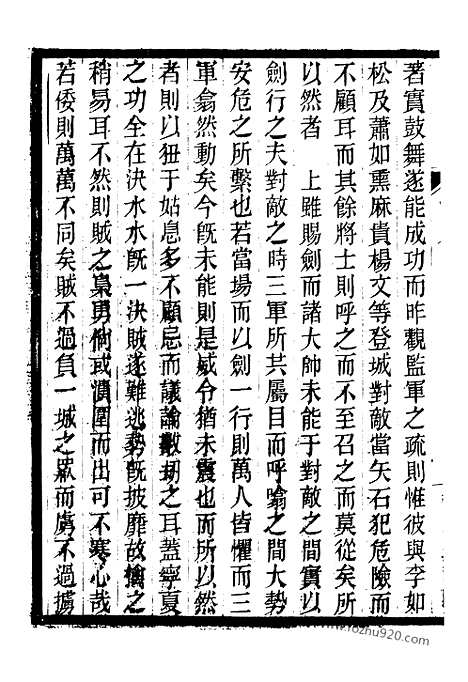 著實鼓舞遂能成功而昨觀監軍之疏則惟彼與李如
松及蕭如熏麻貴楊文等登城對敵當矢石犯危險而
不顧耳而其餘將士則呼之而不至召之而莫從矣所
以然者　上雖賜劍而諸大帥未能于對敵之間實以
劍行之夫對敵之時三軍所共屬目而呼噏之間大勢
安危之所繫也若當場而以劍一行則萬人皆懼而三
軍翕然動矣今旣未能則是威令猶未震也而所以然
者則以狃于姑息多不顧忌而議論數易之耳蓋寧夏
之功全在決水水旣一決賊遂難逃勢旣披靡故擒之
稍易耳不然則賊之梟勇倘或潰圍而出可不寒心哉
若倭則萬萬不同矣賊不過負一城之眾而虜不過擄
www.fozhu920.com